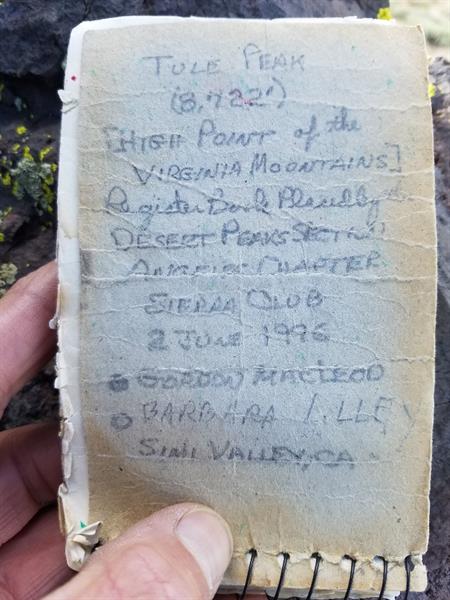 TULE PEAK
(8,722')
[HIGH POINT of the
VIRGINIA MOUNTAINS]
Register Book Placed by
DESERT PEAKS SECTION
ANGELES CHAPTER
SIERRA CLUB
2 JUNE 1996
GORDON MACLEOD
BARBARA LILLEY
SIMI VALLEY, CA